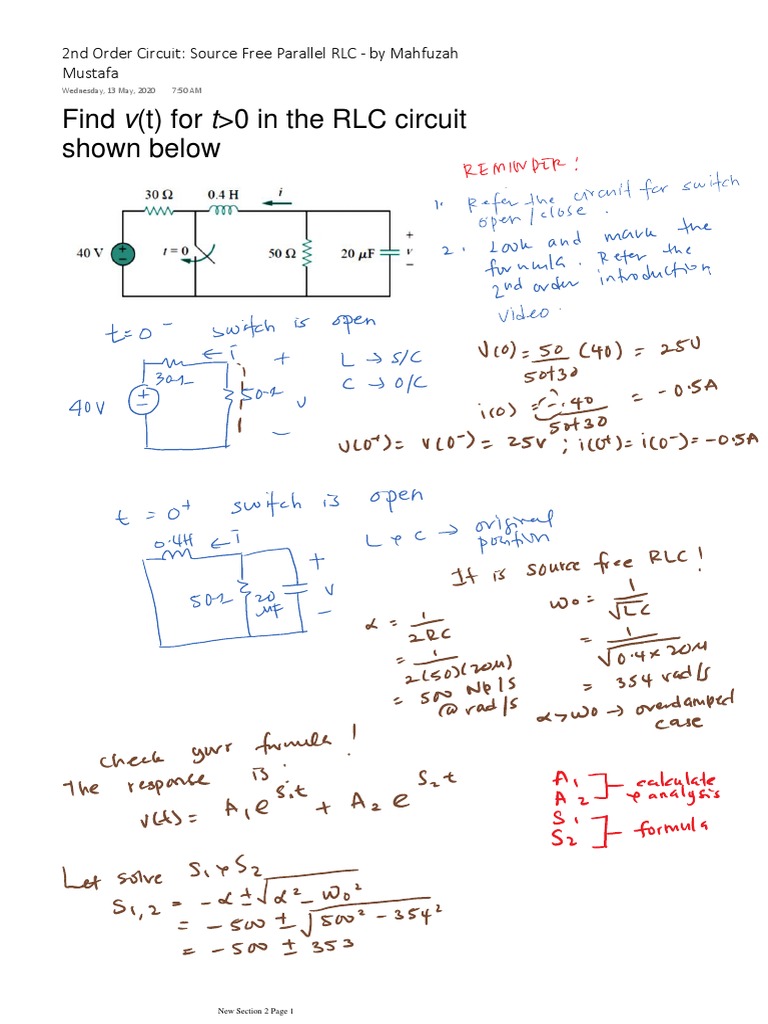 2nd Order Circuit: Source Free Parallel RLC - by Mahfuzah
Mustafa
Wednesday, 13 May, 2020 7:50 AM
Find v(t) for t>0 in the RLC circuit
shown below
REMINDER!
1. Refer the circuit for switch
open/close.
2. Look and mark the
formula. Refer the
2nd order introduction
video.
30 Ω 0.4 H i
40 V t = 0 50 Ω 20 μF + v −
t=0⁻ switch is open
← i
30Ω
40V
+ −
50Ω
+
v
−
L → S/C
C → O/C
V(0) = 50/(50+30) (40) = 25V
i(0) = −40/(50+30) = −0.5A
V(0⁺) = V(0⁻) = 25V ; i(0⁺) = i(0⁻) = −0.5A
t = 0⁺ switch is open
0.4H ← i
50Ω 20 μF
+
v
−
L & C → original
position
It is source free RLC!
α = 1/2RC
= 1/2(50)(20μ)
= 500 Np/s
@ rad/s
ω₀ = 1/√LC
= 1/√0.4×20μ
= 354 rad/s
α>ω₀ → overdamped
case
Check your formula!
The response is:
v(t) = A₁e^S₁t + A₂e^S₂t
A₁
A₂ calculate
& analysis
S₁
S₂ formula
Let solve S₁ & S₂
S₁,₂ = −α ± √α² − ω₀²
= −500 ± √500² − 354²
= −500 ± 353
New Section 2 Page 1